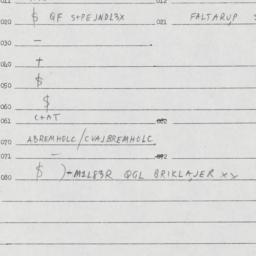 011 012
020 $ QF S+PEJNDL3X 021 FALTARUP
030 –
040 +
050 $
060 $
061 C+AT 062
070 ABREMHOLC/CVAJBREMHOLC
071 – 072
080 $ )+M1L83R QGL BRIKLAJER